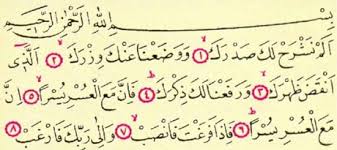 بِسْمِ اللّٰهِ الرَّحْمٰنِ الرَّحِيْمِ
اَلَمْ نَشْرَحْ لَكَ صَدْرَكَ ۙ﴿١﴾ وَوَضَعْنَا عَنْكَ وِزْرَكَ ۙ﴿٢﴾ اَلَّذِىْٓ
اَنْقَضَ ظَهْرَكَ ۙ﴿٣﴾ وَرَفَعْنَا لَكَ ذِكْرَكَ ؕ﴿٤﴾ فَاِنَّ مَعَ الْعُسْرِ يُسْرًا ۙ﴿٥﴾ اِنَّ
مَعَ الْعُسْرِ يُسْرًا ؕ﴿٦﴾ فَاِذَا فَرَغْتَ فَانْصَبْ ۙ﴿٧﴾ وَاِلٰى رَبِّكَ فَارْغَبْ ﴿٨﴾